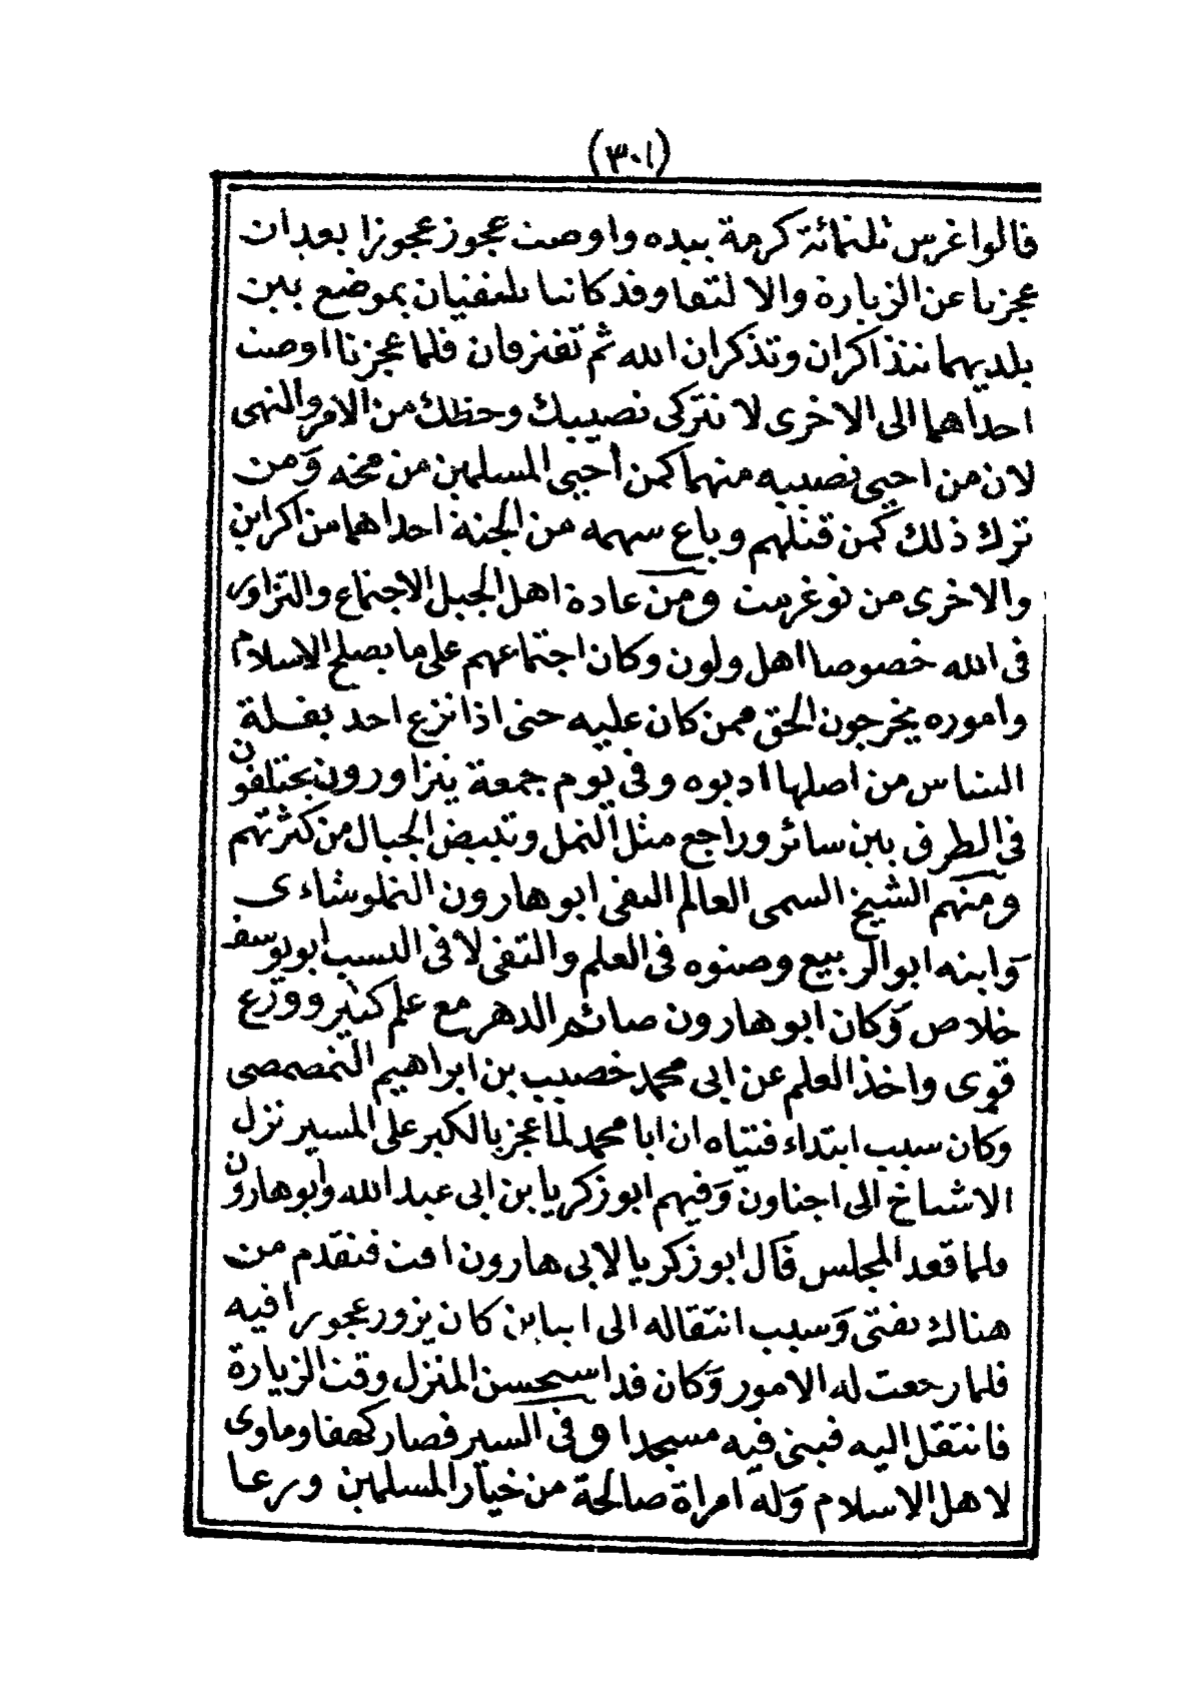 (٣٠١)
قالوا غرس ثلثمائة كرمة بيده واوصت عجوز عجوزا بعد ان
عجزتا عن الزيارة والالتقا وقد كانتا تلتقيان بموضع بين
بلديهما تتذاكران وتذكران الله ثم تفترقان فلما عجزتا اوصت
احداهما الى الاخرى لا تتركى نصيبك وحظك من الامر والنهى
لان من احيى نصيبه منهما كمن أحيى المسلمين من مخه وَمن
ترك ذلك كمن قتلهم وباع سهمه من الجنة احداهما من اكراين
والاخرى من توغرست ومن عادة اهل الجبل الاجتماع والتزاور
فى الله خصوصا اهل ولون وكان اجتماعهم على ما يصلح الاسلام
واموره يخرجون الحق ممن كان عليه حتى اذا نزع احد بقلة
البساس من اصلها ادبوه وفى يوم جمعة يتزاورون يختلفون
فى الطرق بين سائر وراجع مثل النمل وتبيض الجبال من كثرتهم
ومنهم الشيخ السمى العالم التقى ابو هارون التملوشاءى
وَابنه ابو الربيع وصنوه فى العلم والتقى لا فى النسب ابو يوسف
خلاص وَكان ابو هارون صائم الدهر مع علم كثير وورع
قوى واخذ العلم عن ابى محمد خصيب بن ابراهيم التمصمصى
وكان سبب ابتداء فتياه ان ابا محمد لما عجز بالكبر على المسير نزل
الاشياخ الى اجناون وَفيهم ابو زكريا بن ابى عبد الله وابو هارون
ولما قعد المجلس قال ابو زكريا لابى هارون افت فتقدم من
هناك يفتى وَسبب انتقاله الى ابناين كان يزور عجوزا فيه
فلما رجعت له الامور وَكان قد استحسن المنزل وقت الزيارة
فانتقل اليه فبنى فيه مسجدا وفى السير فصار كهفا وماوى
لاهل الاسلام وَله امراة صالحة من خيار المسلمين ورعا